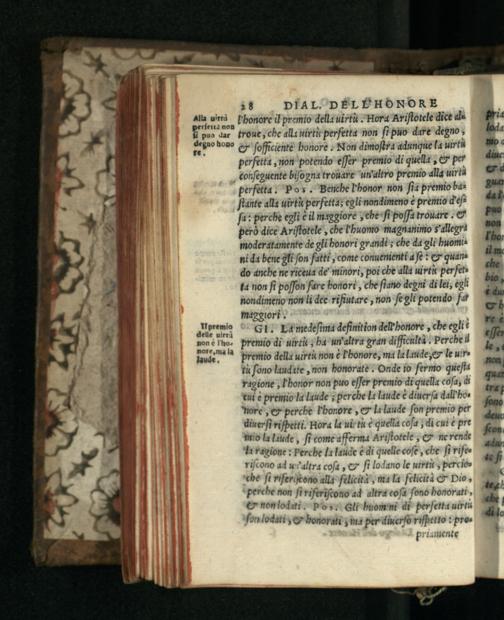 28 DIAL. DELL'HONORE
Alla uirtù
perfetta non
si puo dar
degno hono
re.
l'honore il premio della uirtù. Hora Aristotele dice al
troue, che alla uirtù perfetta non si puo dare degno,
& sofficiente honore. Non dimostra adunque la uirtù
perfetta, non potendo esser premio di quella, & per
conseguente bisogna trouare un'altro premio alla uirtù
perfetta. Pos. Benche l'honor non sia premio ba-
stante alla uirtù perfetta; egli nondimeno è premio d'es-
sa: perche egli è il maggiore, che si possa trouare. &
però dice Aristotele, che l'huomo magnanimo s'allegra
moderatamente de gli honori grandi; che da gli huomi-
ni da bene gli son fatti, come conuenienti a sè: & quan-
do anche ne riceua de' minori, poi che alla uirtù perfet-
ta non si posson fare honori, che siano degni di lei, egli
nondimeno non li dee rifiutare, non se gli potendo far
maggiori.
Il premio
delle uirtù
non è l'ho-
nore, ma la
laude.
GI. La medesima definition dell'honore, che egli è
premio di uirtù, ha un'altra gran difficultà. Perche il
premio della uirtù non è l'honore, ma la laude, & le uir-
tù sono laudate, non honorate. Onde io fermo questa
ragione, l'honor non puo esser premio di quella cosa, di
cui è premio la laude; perche la laude è diuersa dall'ho-
nore, & perche l'honore, & la laude son premio per
diuersi rispetti. Hora la uirtù è quella cosa, di cui è pre
mio la laude, si come afferma Aristotele, & ne rende
la ragione: Perche la laude è di quelle cose, che si rife-
riscono ad un'altra cosa, & si lodano le uirtù, percio-
che si riferiscono alla felicità, ma la felicità & Dio,
perche non si riferiscono ad altra cosa sono honorati,
& non lodati. Pos. Gli huomini di perfetta uirtù
son lodati, & honorati, ma per diuerso rispetto: pro-
priamente